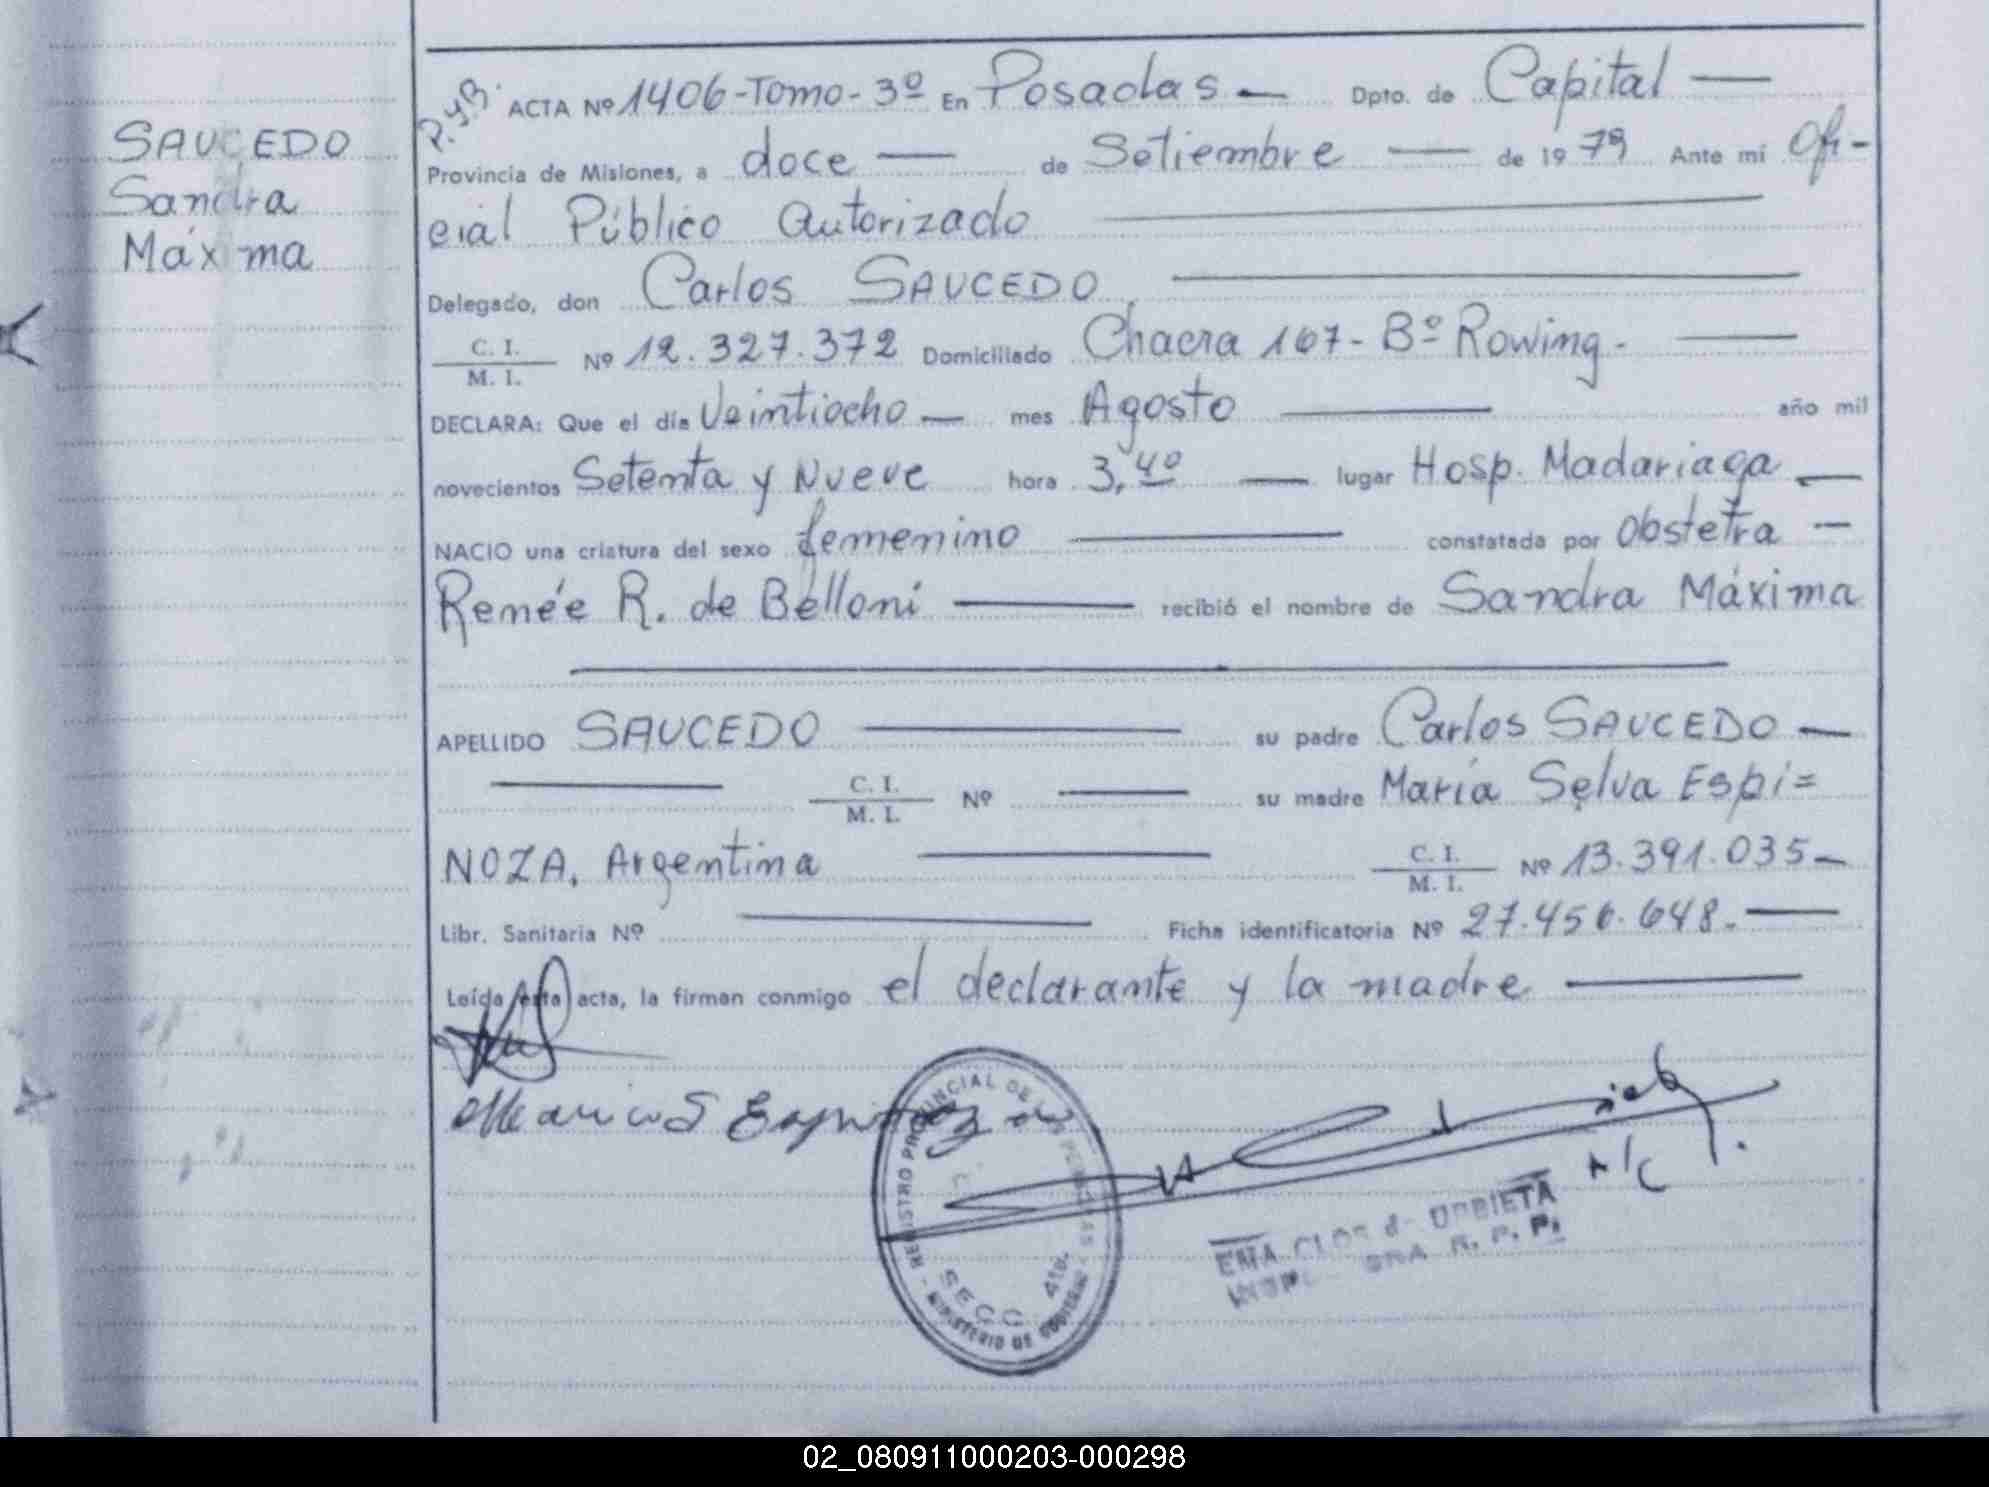 SAUCEDO
Sandra
Máxima
P.y.B. ACTA Nº 1406-Tomo-3º En Posadas — Dpto. de Capital —
Provincia de Misiones, a doce — de Setiembre — de 1979 Ante mí Ofi-
cial Público Autorizado
Delegado, don Carlos SAUCEDO
C. I.
M. I. Nº 12.327.372 Domiciliado Chacra 167- Bº Rowing. —
DECLARA: Que el día Veintiocho — mes Agosto — año mil
novecientos Setenta y Nueve hora 3,40 — lugar Hosp. Madariaga —
NACIO una criatura del sexo femenino — constatada por Obstetra —
Renée R. de Belloni — recibió el nombre de Sandra Máxima
APELLIDO SAUCEDO — su padre Carlos SAUCEDO —
— C. I.
M. I. Nº — su madre María Selva Espi=
NOZA, Argentina — C. I.
M. I. Nº 13.391.035—
Libr. Sanitaria Nº — Ficha identificatoria Nº 27.456.648. —
Leída esta acta, la firman conmigo el declarante y la madre —
REGISTRO PROVINCIAL DE LAS PERSONAS - MINISTERIO DE GOBIERNO -
SECC. 4ta.
A/C
EMA
R. P. P.
02_080911000203-000298